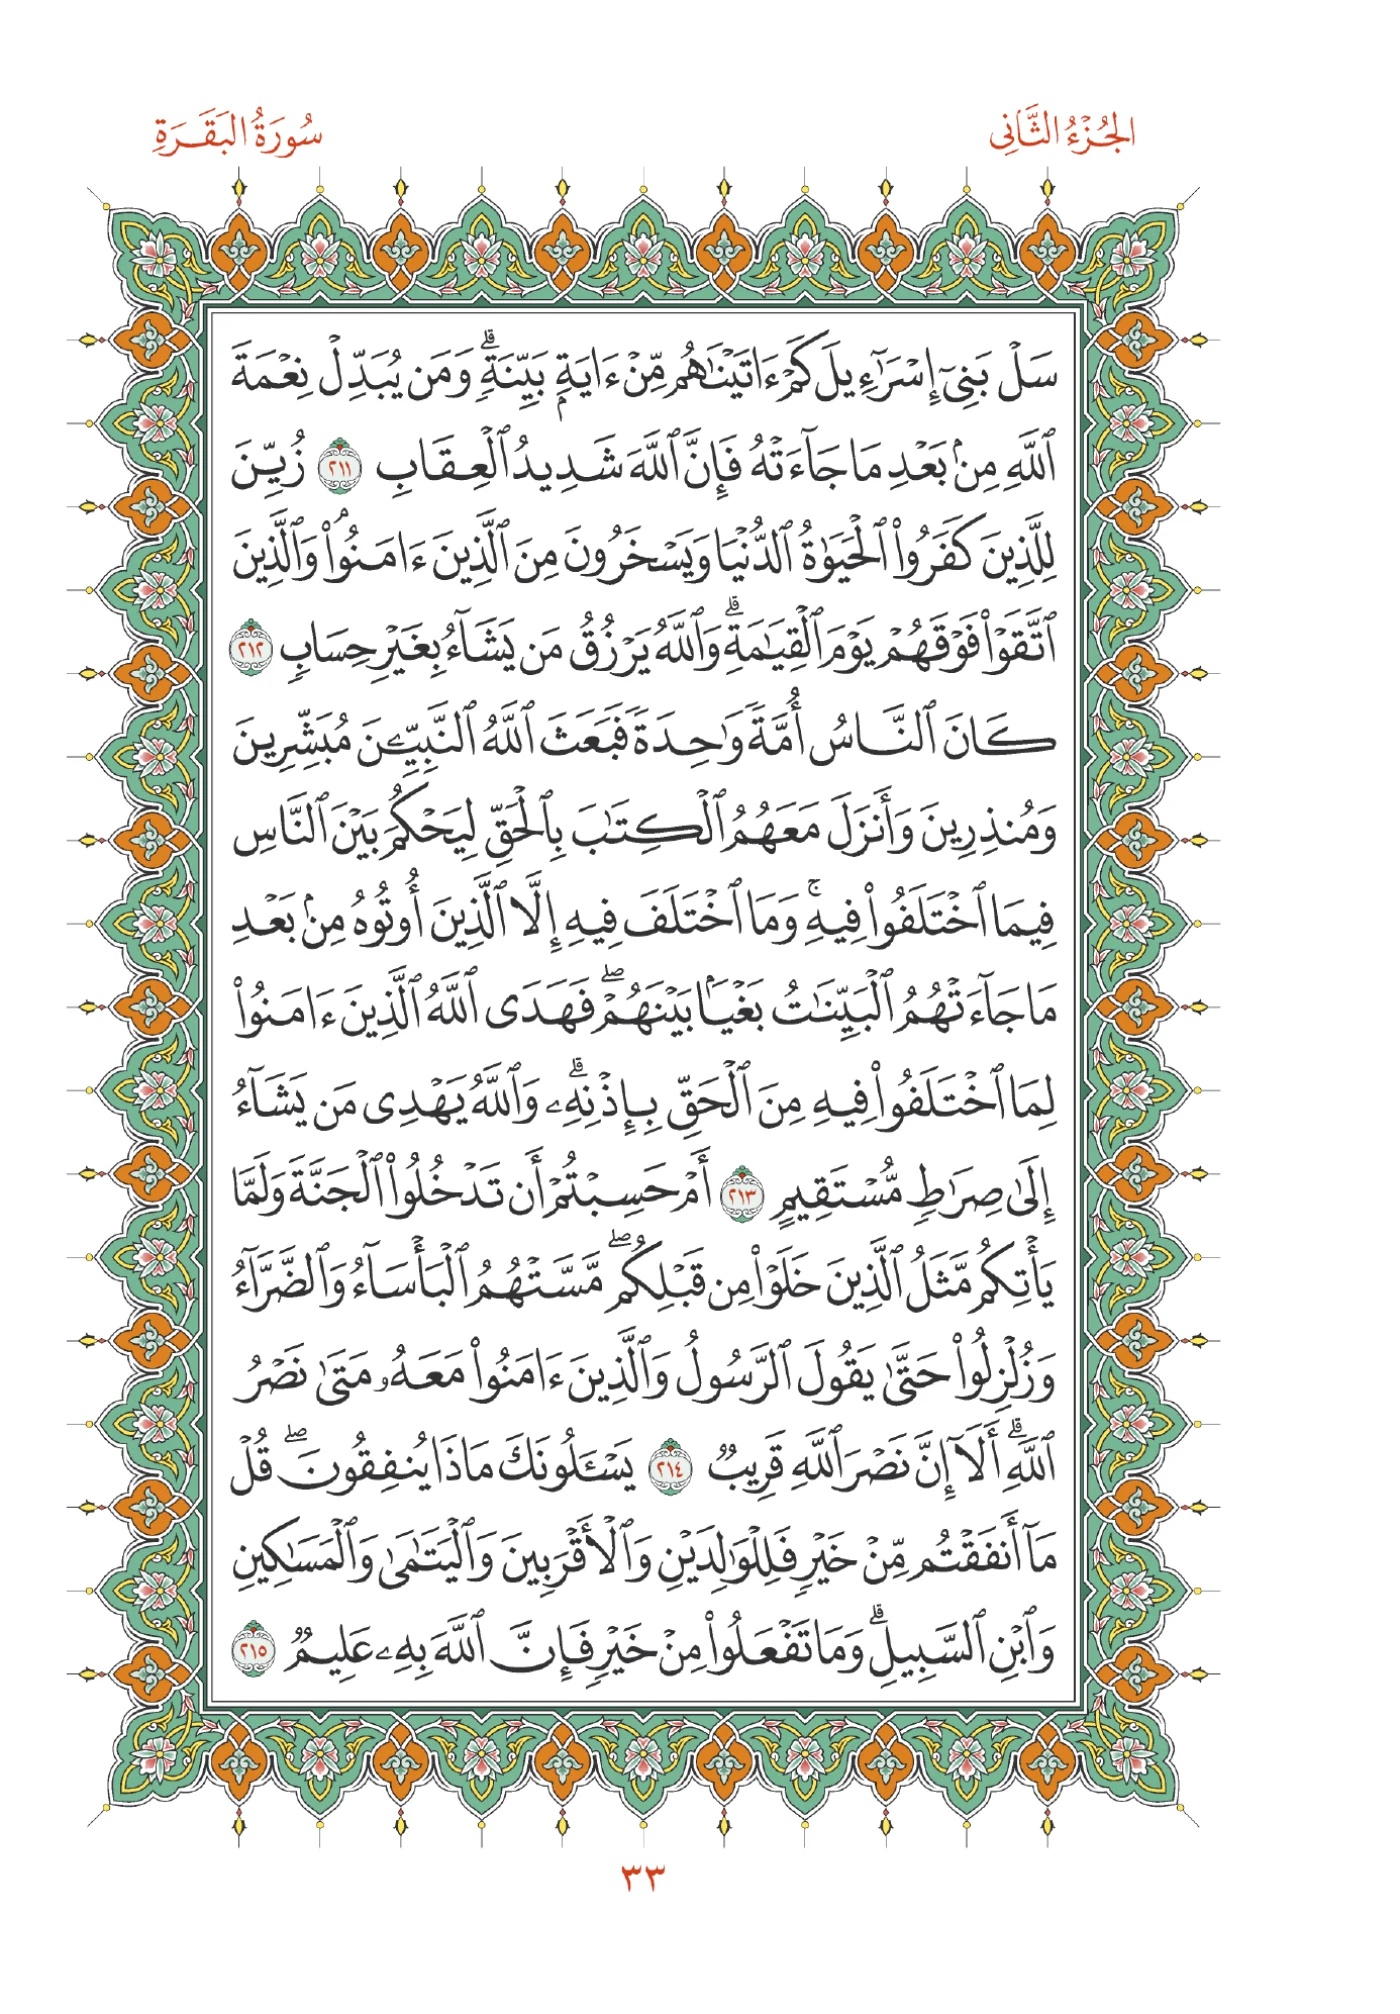 الجُزْءُ الثَّانِي
سُورَةُ البَقَرَةِ
سَلْ بَنِىٓ إِسْرَٰٓءِيلَ كَمْ ءَاتَيْنَٰهُم مِّنْ ءَايَةٍۭ بَيِّنَةٍۗ وَمَن يُبَدِّلْ نِعْمَةَ
ٱللَّهِ مِنۢ بَعْدِ مَا جَآءَتْهُ فَإِنَّ ٱللَّهَ شَدِيدُ ٱلْعِقَابِ ٢١١ زُيِّنَ
لِلَّذِينَ كَفَرُوا۟ ٱلْحَيَوٰةُ ٱلدُّنْيَا وَيَسْخَرُونَ مِنَ ٱلَّذِينَ ءَامَنُوا۟ۘ وَٱلَّذِينَ
ٱتَّقَوْا۟ فَوْقَهُمْ يَوْمَ ٱلْقِيَٰمَةِۗ وَٱللَّهُ يَرْزُقُ مَن يَشَآءُ بِغَيْرِ حِسَابٍ ٢١٢
كَانَ ٱلنَّاسُ أُمَّةً وَٰحِدَةً فَبَعَثَ ٱللَّهُ ٱلنَّبِيِّـۧنَ مُبَشِّرِينَ
وَمُنذِرِينَ وَأَنزَلَ مَعَهُمُ ٱلْكِتَٰبَ بِٱلْحَقِّ لِيَحْكُمَ بَيْنَ ٱلنَّاسِ
فِيمَا ٱخْتَلَفُوا۟ فِيهِۚ وَمَا ٱخْتَلَفَ فِيهِ إِلَّا ٱلَّذِينَ أُوتُوهُ مِنۢ بَعْدِ
مَا جَآءَتْهُمُ ٱلْبَيِّنَٰتُ بَغْيًۢا بَيْنَهُمْۖ فَهَدَى ٱللَّهُ ٱلَّذِينَ ءَامَنُوا۟
لِمَا ٱخْتَلَفُوا۟ فِيهِ مِنَ ٱلْحَقِّ بِإِذْنِهِۦۗ وَٱللَّهُ يَهْدِى مَن يَشَآءُ
إِلَىٰ صِرَٰطٍ مُّسْتَقِيمٍ ٢١٣ أَمْ حَسِبْتُمْ أَن تَدْخُلُوا۟ ٱلْجَنَّةَ وَلَمَّا
يَأْتِكُم مَّثَلُ ٱلَّذِينَ خَلَوْا۟ مِن قَبْلِكُمۖ مَّسَّتْهُمُ ٱلْبَأْسَآءُ وَٱلضَّرَّآءُ
وَزُلْزِلُوا۟ حَتَّىٰ يَقُولَ ٱلرَّسُولُ وَٱلَّذِينَ ءَامَنُوا۟ مَعَهُۥ مَتَىٰ نَصْرُ
ٱللَّهِۗ أَلَآ إِنَّ نَصْرَ ٱللَّهِ قَرِيبٌ ٢١٤ يَسْـَٔلُونَكَ مَاذَا يُنفِقُونَۖ قُلْ
مَآ أَنفَقْتُم مِّنْ خَيْرٍ فَلِلْوَٰلِدَيْنِ وَٱلْأَقْرَبِينَ وَٱلْيَتَٰمَىٰ وَٱلْمَسَٰكِينِ
وَٱبْنِ ٱلسَّبِيلِۗ وَمَا تَفْعَلُوا۟ مِنْ خَيْرٍ فَإِنَّ ٱللَّهَ بِهِۦ عَلِيمٌ ٢١٥
٣٣